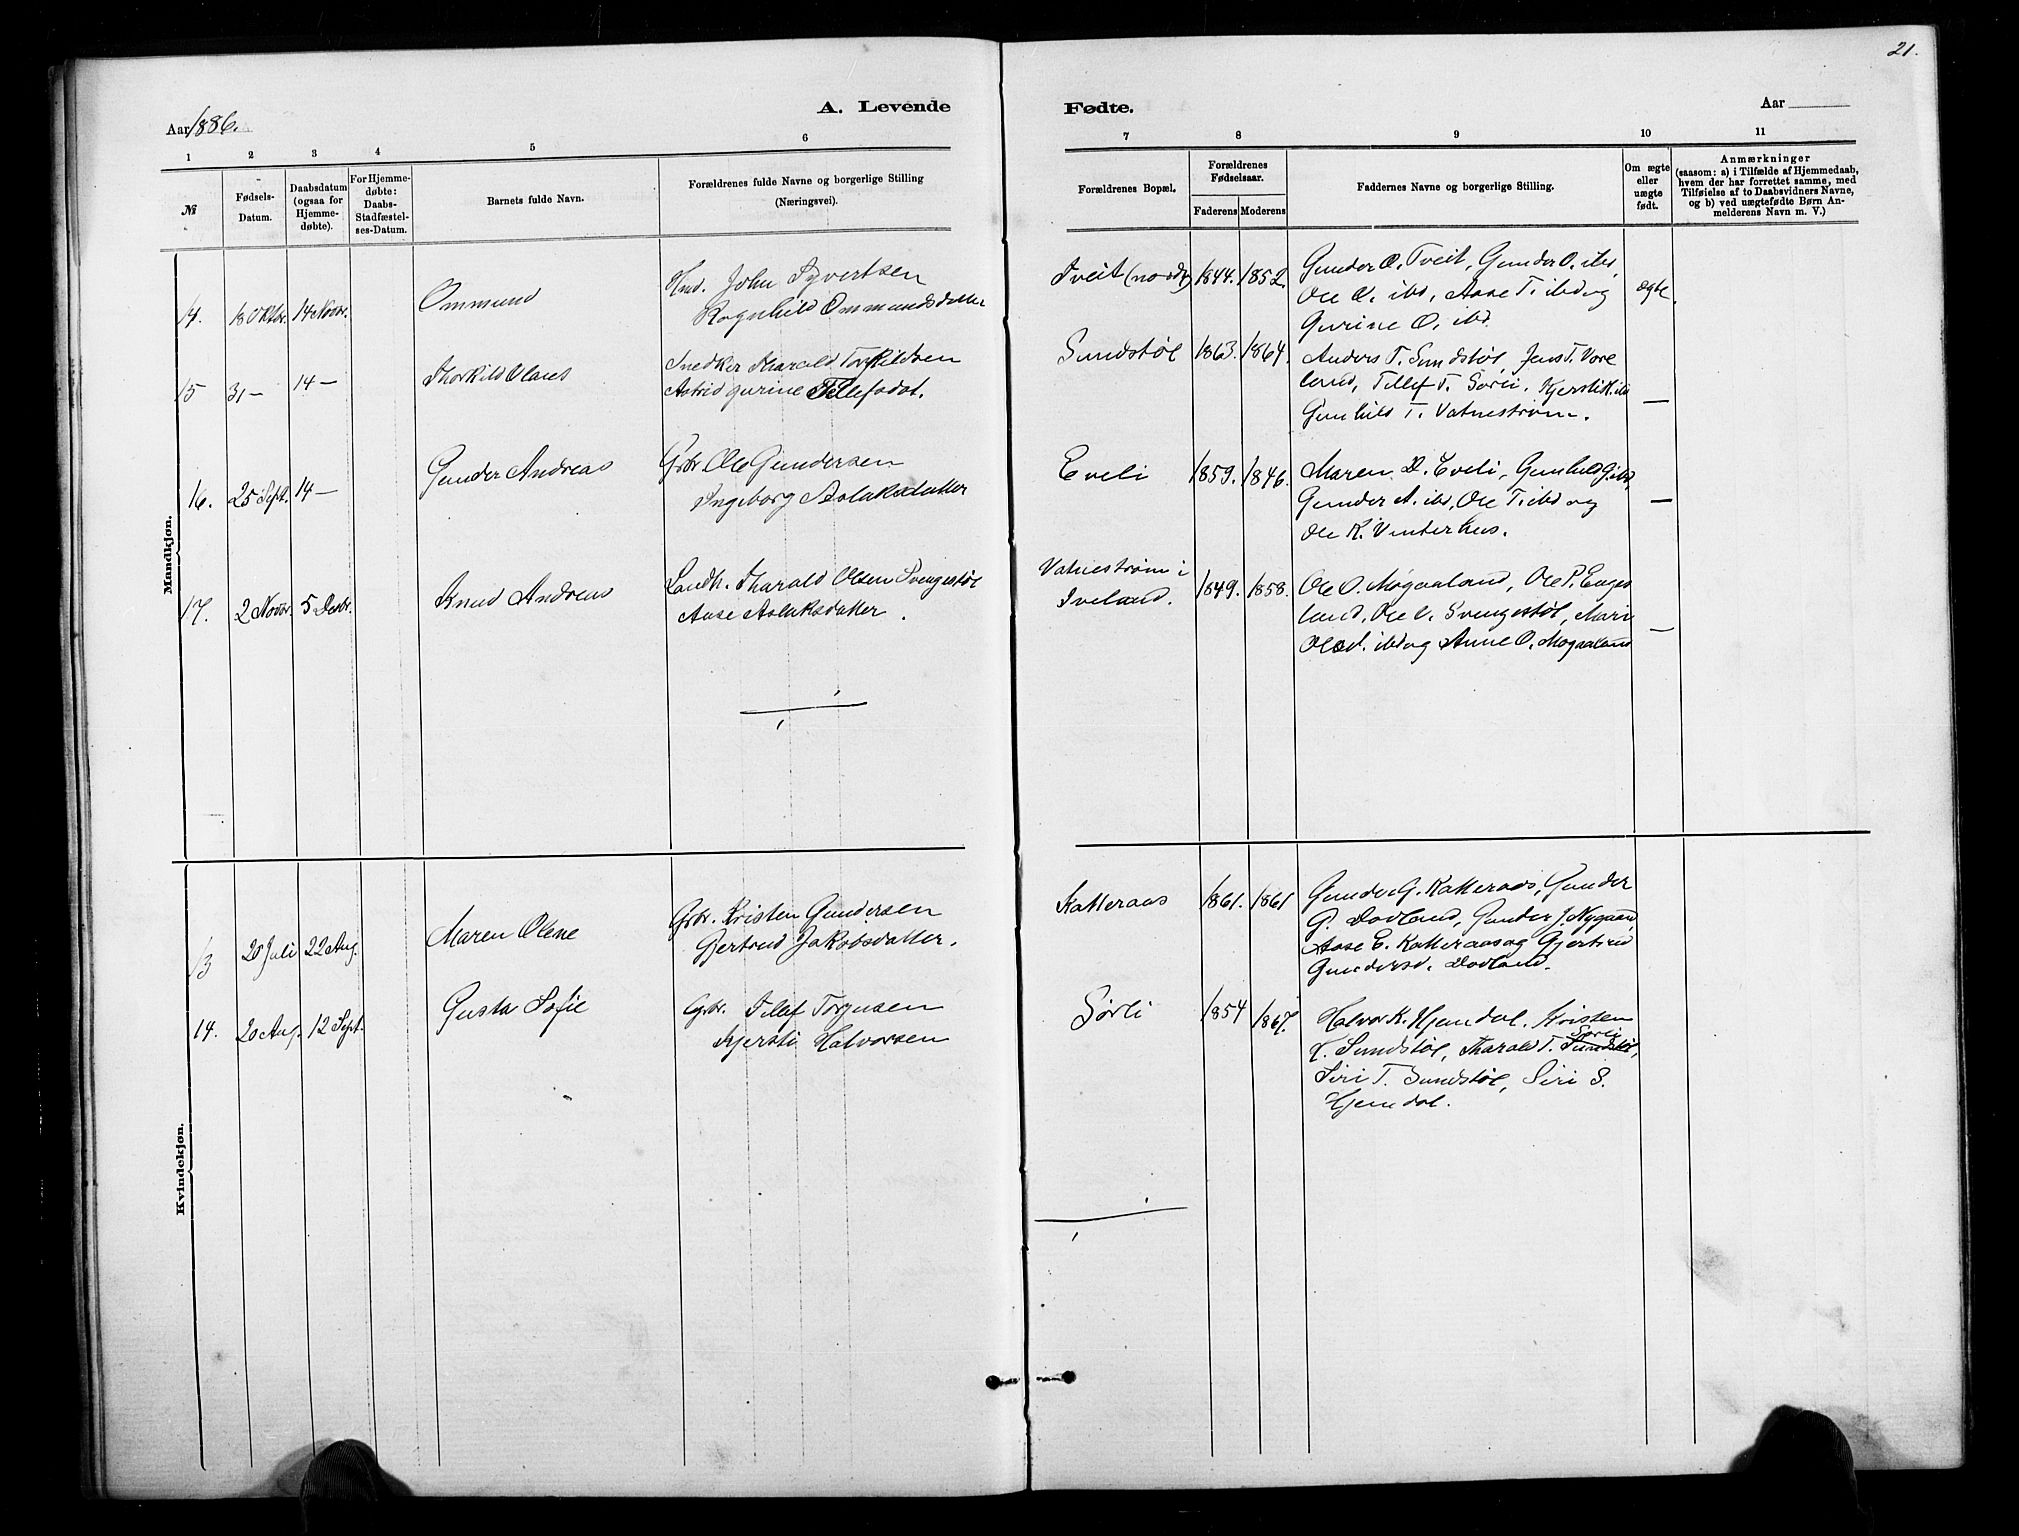 21.
Aar 1886.
A. Levende
Fødte.
Aar
1 2 3 4 5 6 7 8 9 10 11
№
Fødsels-
Datum.
Daabsdatum
(ogsaa for
Hjemme-
døbte).
For Hjemme-
døbte:
Daabs-
Stadfæstel-
ses-Datum.
Barnets fulde Navn.
Forældrenes fulde Navne og borgerlige Stilling
(Næringsvei).
Forældrenes Bopæl.
Forældrenes
Fødselsaar.
Faderens Moderens
Faddernes Navne og borgerlige Stilling.
Om ægte
eller
uægte
født.
Anmærkninger
(saasom: a) i Tilfælde af Hjemmedaab,
hvem der har forrettet samme, med
Tilføielse af to Daabsvidners Navne,
og b) ved uægtefødte Børn An-
melderens Navn m. V.)
Mandkjøn.
14. 18 Oktbr. 14 Novbr.
Ommund
Hmd. John Syvertsen
Ragnhild Ommundsdatter
Tveit (nordr) 1844. 1852.
Gunder O. Tveit, Gunder O. ibd,
Ole O. ibd, Aase T. ibd og
Gurine O. ibd.
ægte.
15 31 — 14 —
Thorkild Olaus
Snedker Tharald Torkildsen
Astrid Gurine Tellefsdat.
Sundstøl 1863. 1864.
Anders T. Sundstøl, Jens T. Vore
land, Tellef T. Sørli, Kjersti H. ibd
Gunhild T. Vatnestrøm.
—
16. 25 Sept. 14 —
Gunder Andreas
Gbr. Ole Gundersen
Ingeborg Aslaksdatter
Eveli 1859. 1846.
Maren D. Eveli, Gunhild G. ibd,
Gunder A. ibd, Ole T. ibd og
Ole K. Vinterhus.
—
17. 2 Novbr. 5 Decbr.
Knud Andreas
Landh. Tharald Olsen Svengestøl
Aase Aslaksdatter.
Vatnestrøm i
Iveland. 1849. 1858.
Ole O. Mogaaland, Ole P. Enges
land, Ole O. Svengestøl, Mari
Olsd. ibd og Anne O. Mogaaland
—
Kvindekjøn.
13 20 Juli 22 Aug.
Maren Olene
Gbr. Kristen Gundersen
Gjertrud Jakobsdatter.
Katteraas 1861. 1861
Gunder G. Katteraas, Gunder
G. Dovland, Gunder J. Nygaard,
Aase E. Katteraas og Gjertrud
Gundersd. Dovland.
14. 20 Aug. 12 Sept.
Gusta Sofie
Gbr. Tellef Torjusen
Kjersti Halvorsen
Sørli 1854 1867.
Halvor K. Hjemdal, Kristen
H. Sundstøl, Tharald T. Sundstøl, Sørli
Siri T. Sundstøl, Siri S.
Hjemdal.